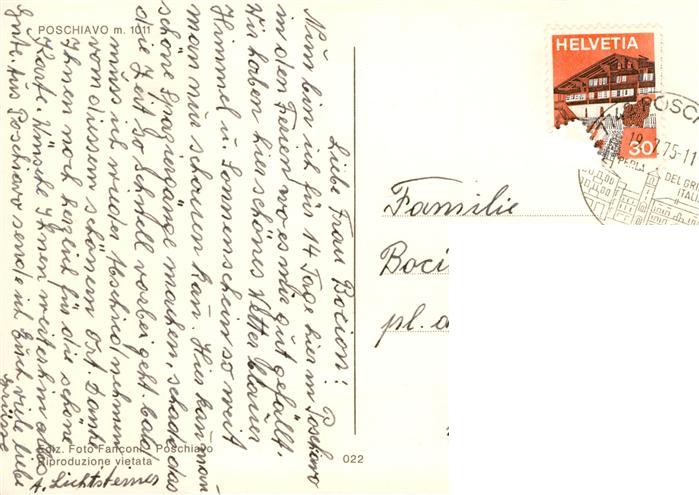 POSCHIAVO m. 1011
Liebe Frau Bocion!
Nun bin ich für 14 Tage hier in Poschiavo
in den Ferien wo es mir gut gefällt.
Wir haben hier schönes Wetter blauer
Himmel u. Sonnenschein so weit
man nur schauen kan. Hier kan man
schöne Spaziergänge machen, schade das
die Zeit so schnell vorbei geht. bald
muss ich wieder Abschied nehmen
vom diessem schönem Ort. Danke
Ihnen noch herzlich für die schöne
Karte. Wünsche Ihnen weiterhin alles
Gute. Aus Poschiavo sende ich Euch viele liebe
Grüsse
A. Lichtsteiner
Ediz. Foto Fanconi - Poschiavo
Riproduzione vietata
022
HELVETIA
30
POSC
19. 7. 75-11
PERLA DEL GRI
ITALI
Familie
Boci
pl. d